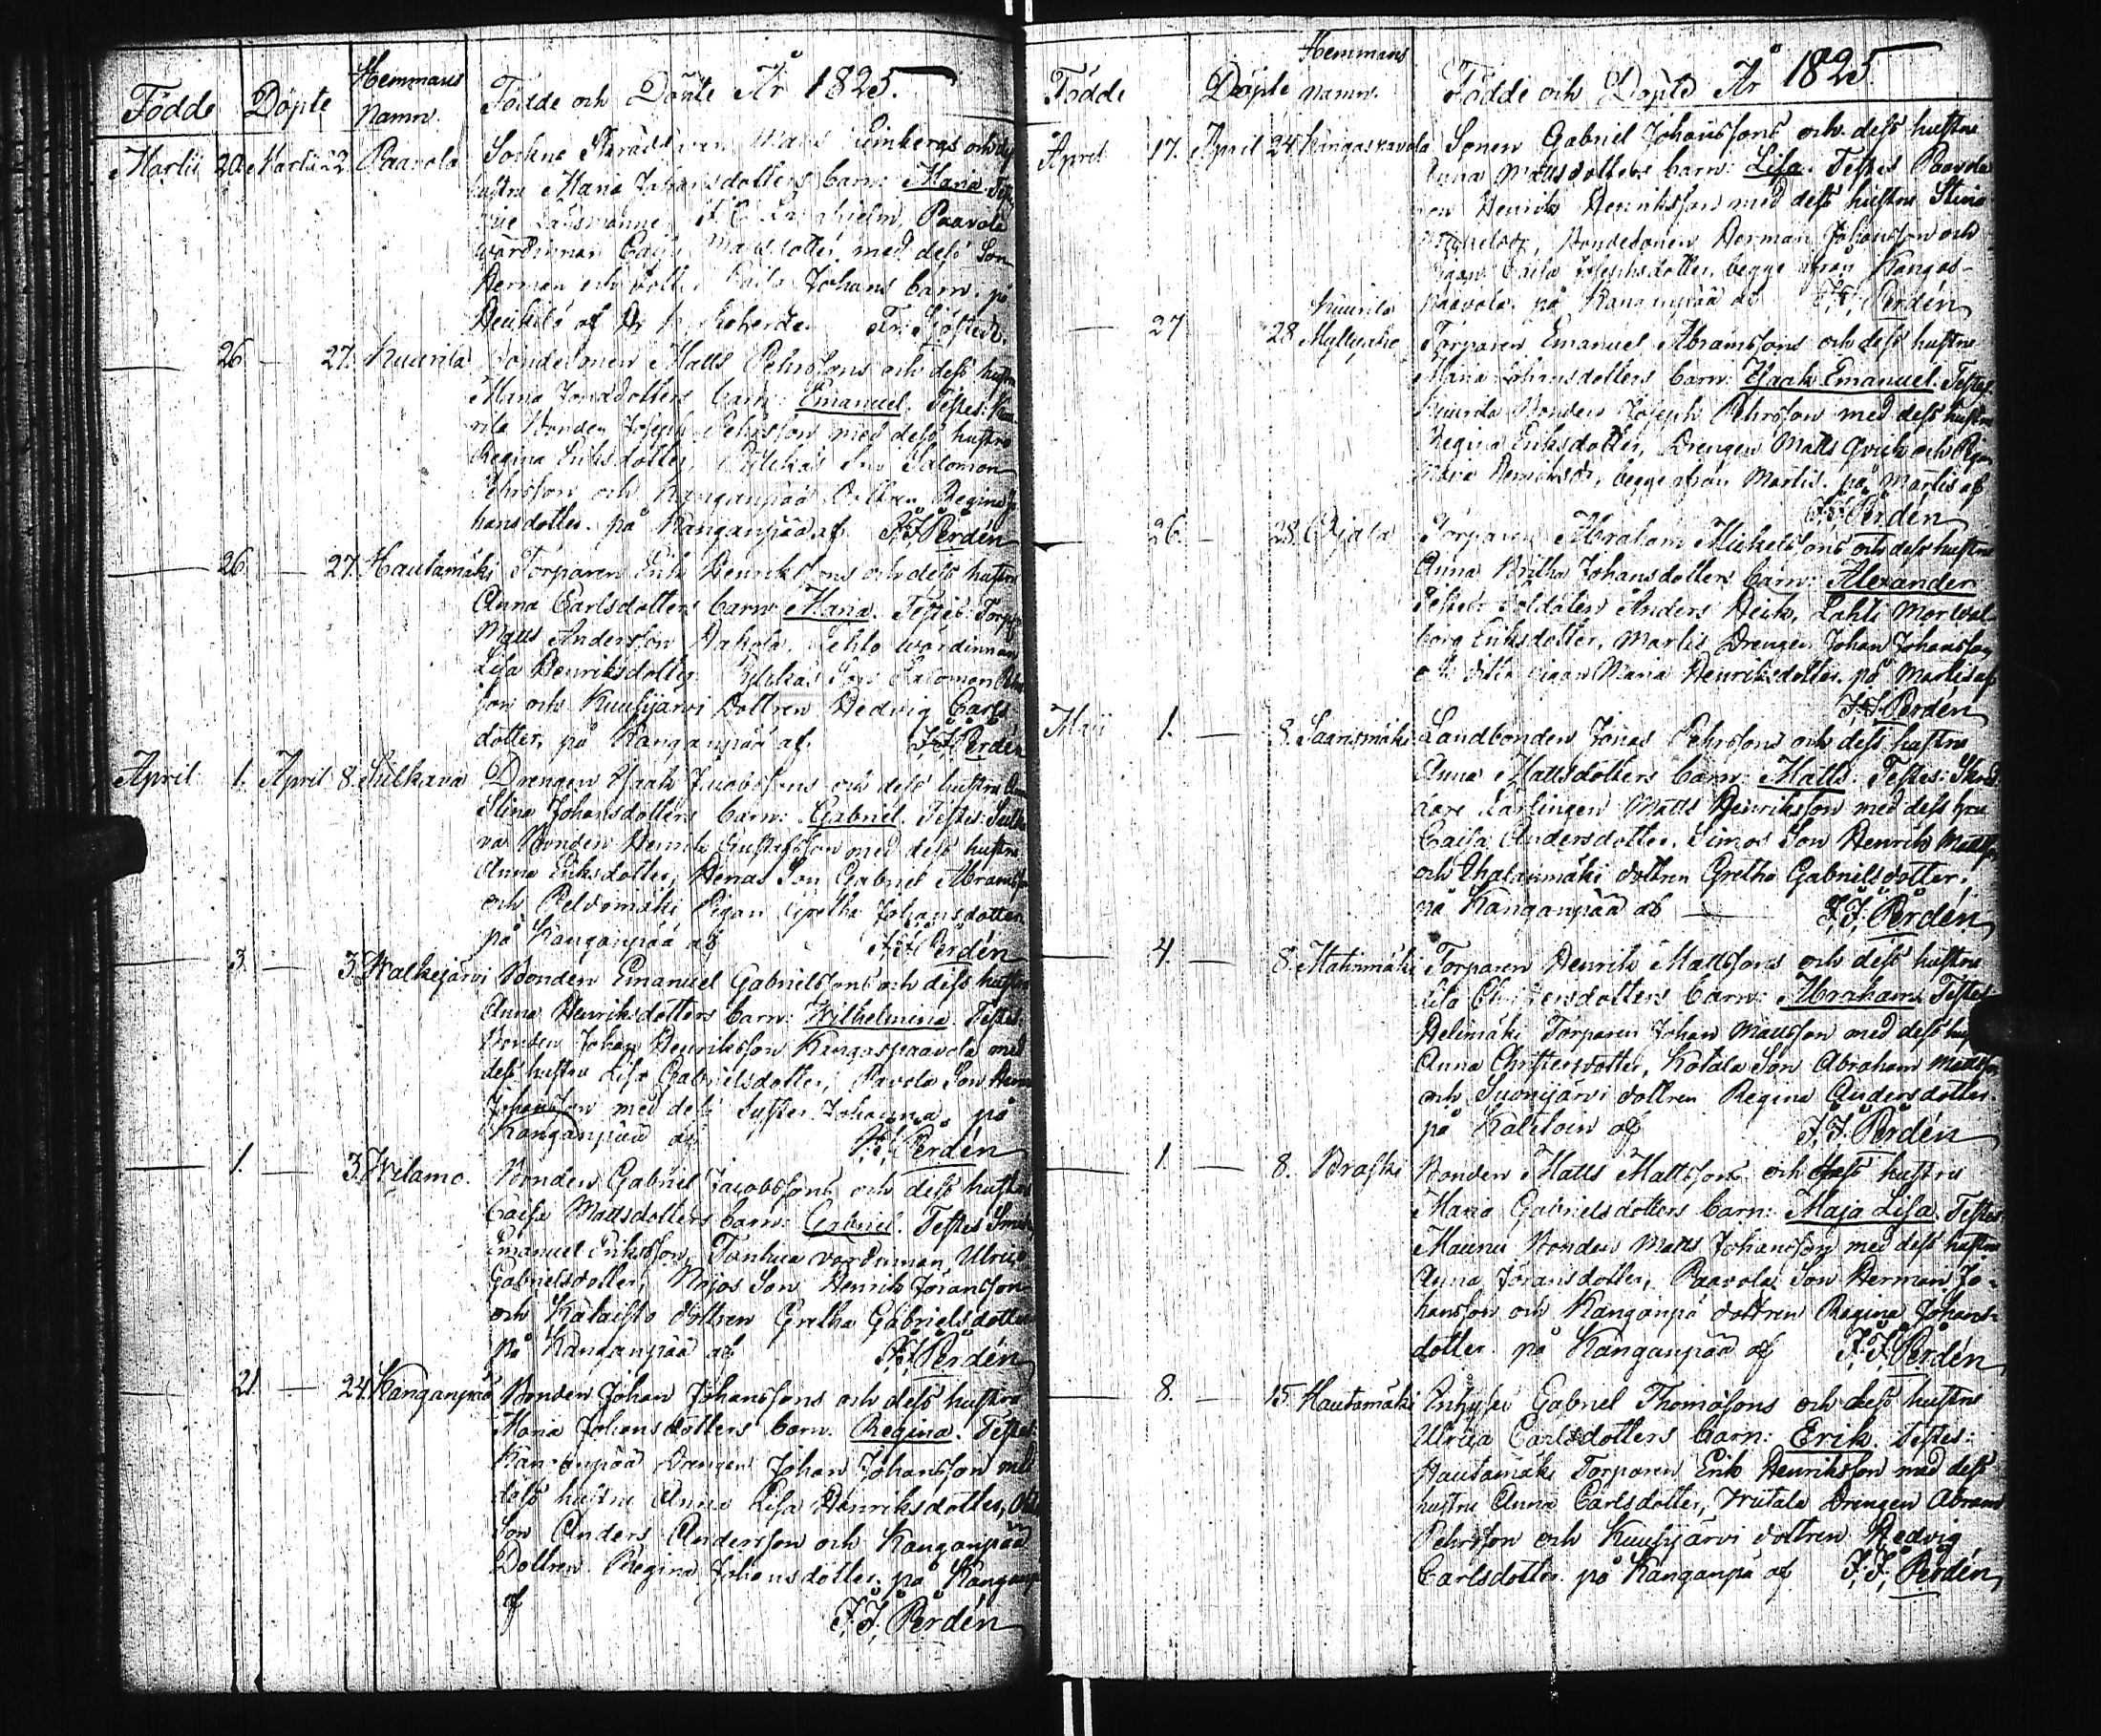 Födde Döpte Hemmans Namn. Födde och Döpte År 1825.
Martii 20. Martii 22. Paavola Sockne Skräddaren och dess
hustru Maria Johansdotters barn: Maria. Testes
Paavola
wärdinnan Caisa Mattsdotter med dess Son
Herman och Caisa Johans barn. på
af Fr. Sjöstedt.
26 — 27. Kuurila Bondesonen Matts Pehrssons och dess hustru
Maria dotters barn: Emanuel. Testes: Kuu-
rila Bonden Joseph Pehrsson med dess hustru
Regina Eriksdotter, Son Salomon
Pehrsson och Kanganpää Dottren Regina Jo-
hansdotter. på Kanganpää af J. J. Perdén
26. — 27. Hautamäki Torparen Erik Henrikssons och dess hustru
Anna Carlsdotters barn: Maria. Testes: Torp:
Matts Andersson wärdinnan
Lisa Henriksdotter Son Salomon Pehrs-
son och Kuusijärvi Dottren Hedvig Carls
dotter, på Kanganpää af J. J. Perdén
April 1. April 8. Sulkava Drengen Isaak Jacobssons och dess hustru
Stina Johansdotters barn: Gabriel. Testes: Sulka
va Bonden Henrik Gustafsson med dess hustru
Anna Eriksdotter, Son Gabriel Abramsson
och Peldomäki Pigan Gretha Johansdotter
på Kanganpää af J. J. Perdén
3. — 3. Walkejärvi Bonden Emanuel Gabrielssons och dess hustru
Anna Henriksdotters barn: Wilhelmina. Testes:
Bonden Johan Henriksson Kangaspaavola med
dess hustru Lisa Gabrielsdotter, Pavola Son Herman
Johansson med dess Syster Johanna på
Kanganpää af J. J. Perdén
1. — 3. Wilamo. Bonden Gabriel Jacobssons och dess hustru
Caisa Mattsdotters barn: Gabriel. Testes
Emanuel Eriksson, Tanhua värdinnan Ulrica
Gabrielsdotter, Son Henrik Göransson
och dottren Gretha Gabrielsdotter
på Kanganpää af J. J. Perdén
21. — 24. Kanganpää Bonden Johan Johanssons och dess hustru
Maria Johansdotters barn. Regina. Testes:
Kanganpää Drengen Johan Johansson med
dess hustru Anna Lisa Henriksdotter,
Son Anders Andersson och Kanganpää
Dottren Regina Johansdotter. på Kanganpää
af J. J. Perdén
Födde Döpte Hemmans Namn. Födde och Döpte År 1825
April 17. April 24 Kangaspavola Sonen Gabriel Johanssons och dess hustru
Anna Mattsdotters barn: Lisa. Testes Paavola
Henrik Henriksson med dess hustru Stina
Bondesonen Herman Johansson och
Pigan Caisa Josephsdotter, begge ifrån Kangas-
paavola. på Kanganpää af J. J. Perdén
— 27 28 Kuurila Myllymäki Torparen Emanuel Abramssons och dess hustru
Maria Johansdotters barn: Isaak Emanuel. Testes
Kuurila Bonden Joseph Pehrsson med dess hustru
Regina Eriksdotter, Drengen Matts Qvick och Pigan
Maria Henriksdr, begge ifrån Martis. på Martis af
J. J. Perdén
26. — 28. Ojala Torparen Abraham Mickelssons och dess hustru
Anna Britha Johansdotters barn: Alexander
Soldaten Anders Lahti Mor Wal-
borg Eriksdotter, Martis Drengen Johan Johansson
och Pigan Maria Henriksdotter. på Martis af
J. J. Perdén
Maji 1. — 8. Saarismäki Landbonden Jonas Pehrssons och dess hustru
Anna Mattsdotters barn: Matts. Testes: Skräd-
dare Lärlingen Matts Henriksson med dess hru
Caisa Andersdotter, Simos Son Henrik Mattsson
och dottren Gretha Gabrielsdotter.
på Kanganpää af — J. J. Perdén
4. — 8. Matinmäki Torparen Henrik Mattssons och dess hustru
Lisa Christersdotters barn: Abraham. Testes
Helimäki Torparen Johan Mattsson med dess hustru
Anna Christersdotter, Kotala Son Abraham Mattsson
och Suonijärvi dottren Regina Andersdotter.
på af J. J. Perdén
1. — 8. Braski Bonden Matts Mattssons och dess hustru
Maria Gabrielsdotters barn: Maja Lisa. Testes:
Maunu Bonden Matts Johansson med dess hustru
Anna Göransdotter, Paavola Son Herman Jo-
hansson och Kanganpä dottren Regina Johans-
dotter. på Kanganpää af J. J. Perdén
8. — 15. Hautamäki Enhyses Gabriel Thomassons och dess hustru
Ulrica Carlsdotters barn: Erik. Testes:
Hautamäki Torparen Erik Henriksson med dess
hustru Anna Carlsdotter, Drengen Abram
Pehrsson och Kuusijärvi dottren Hedvig
Carlsdotter. på Kanganpä af J. J. Perdén